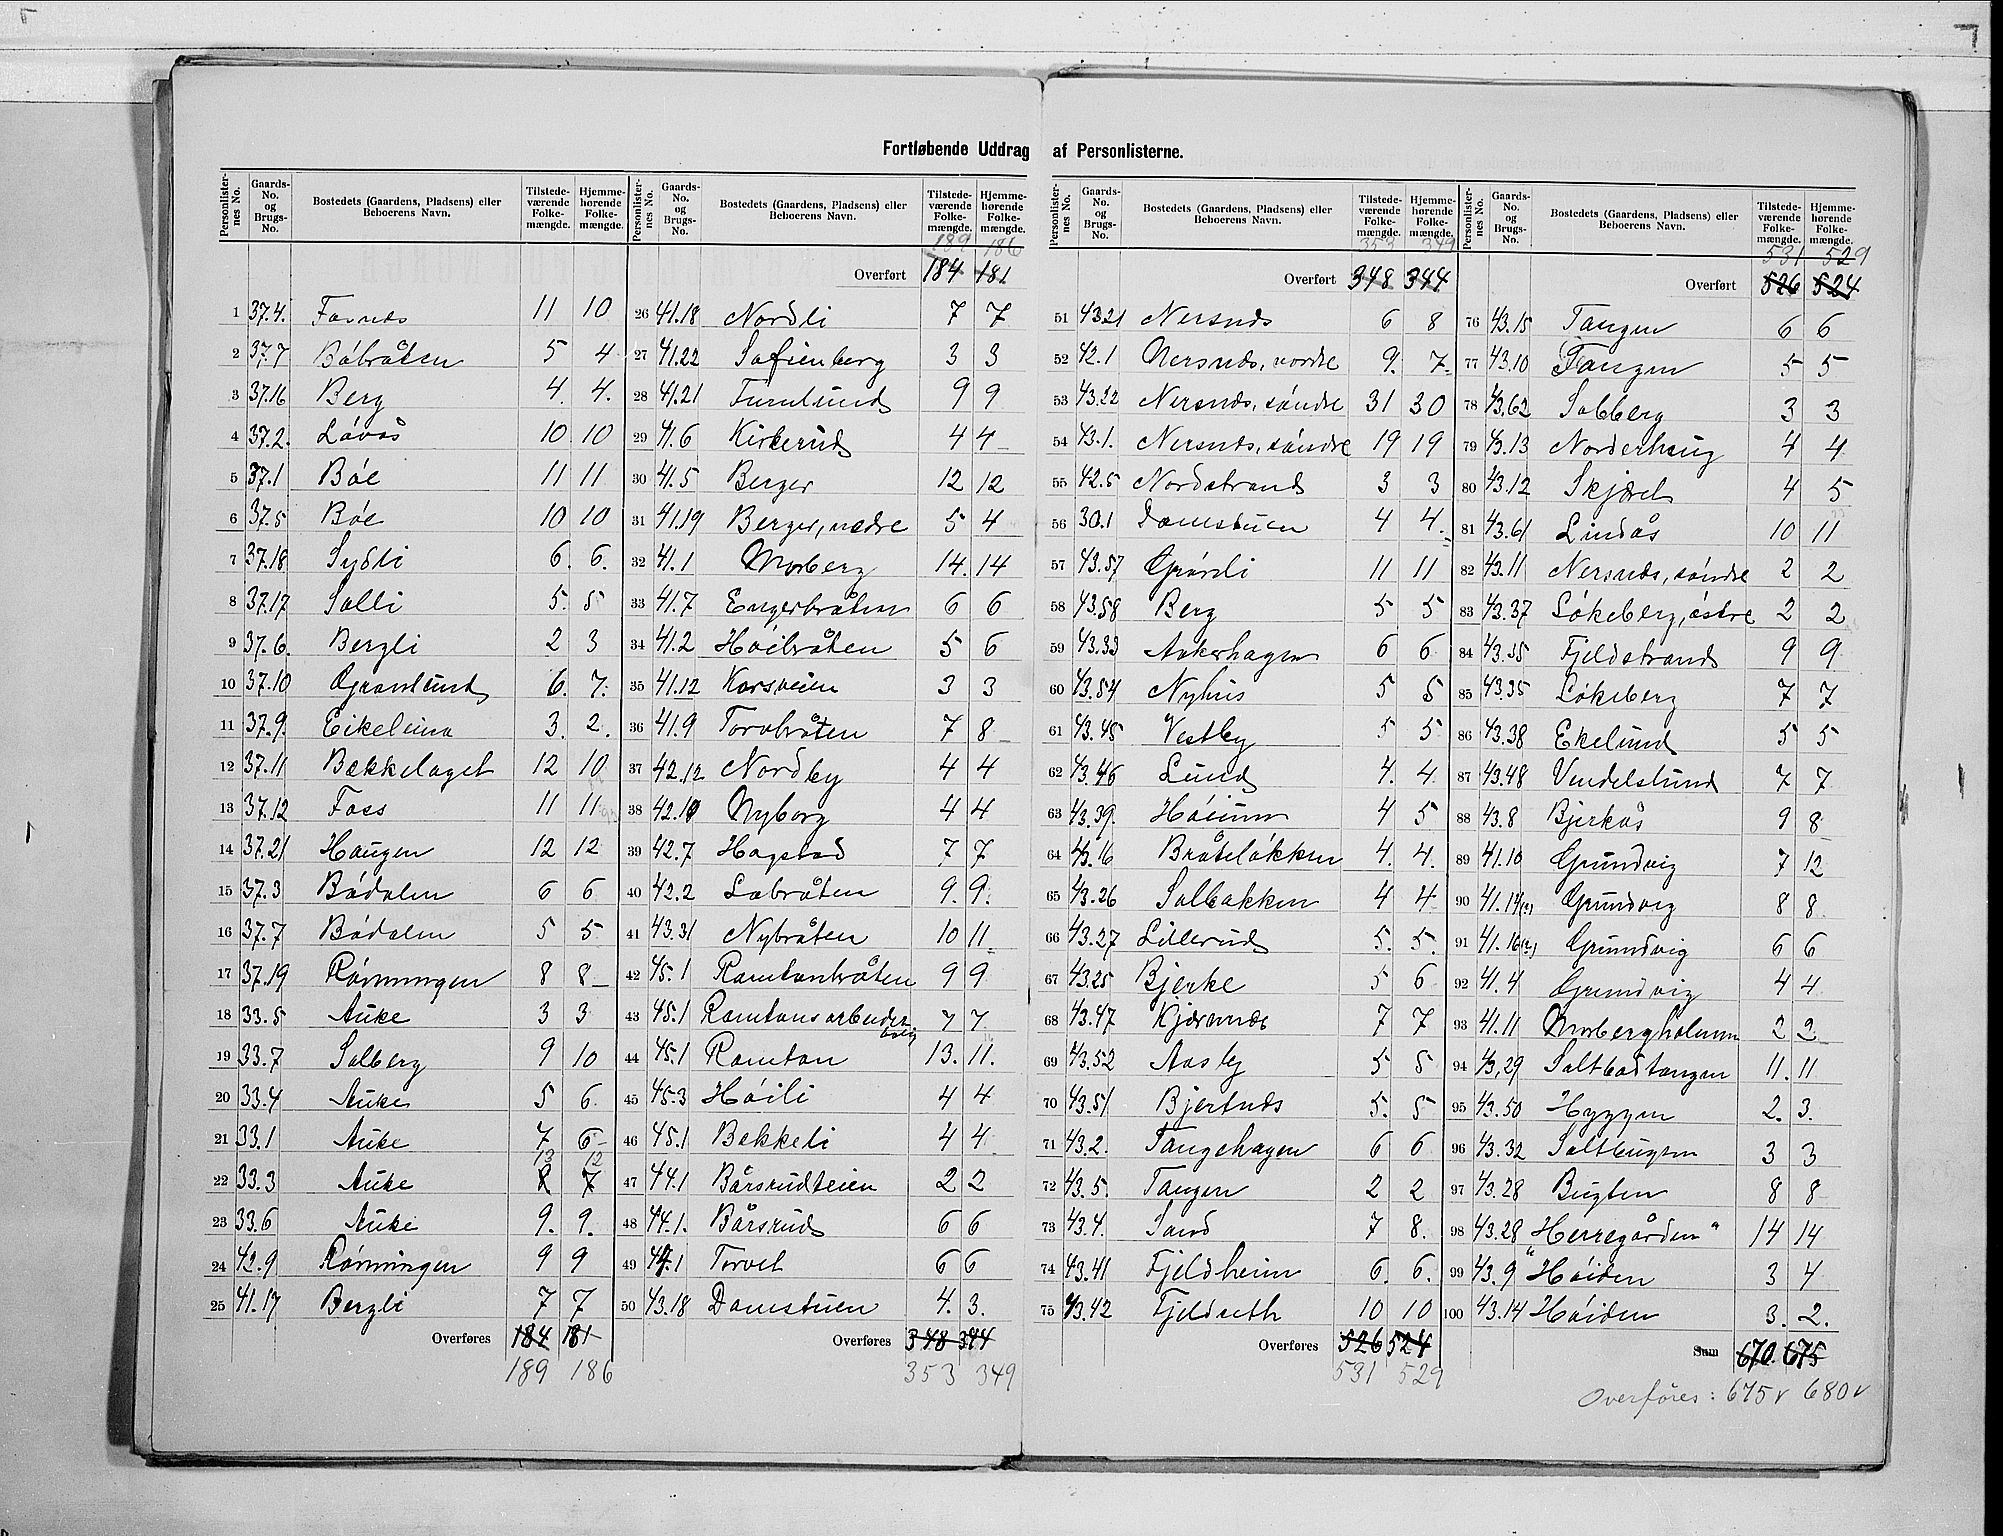 Fortløbende Uddrag af Personlisterne.
Personlisternes No. Gaards-No. og Brugs-No. Bostedets (Gaardens, Pladsens) eller Beboerens Navn. Tilstedeværende Folkemængde. Hjemmehørende Folkemængde.
1 37.4. Fosnes 11 10
2 37.7 Bøbråten 5 4
3 37.16 Berg 4. 4.
4 37.2. Løvås 10 10
5 37.1 Bøe 11 11
6 37.5 Bøe 10 10
7 37.18 Sydli 6. 6.
8 37.17 Solli 5. 5
9 37.6. Bergli 2 3
10 37.10 Granlund 6. 7.
11 37.9. Eikeleina 3. 2.
12 37.11 Bækkelaget 12 10
13 37.12 Foss 11 11
14 37.21 Haugen 12 12
15 37.3 Bødalen 6 6
16 37.7 Bødalen 5 5
17 37.19 Rønningen 8 8
18 33.5 Auke 3 3
19 33.7 Solberg 9 10
20 33.4 Auke 5 6
21 33.1 Auke 7 6
22 33.3 Auke 13 12
23 33.6 Auke 9. 9.
24 42.9 Rønningen 9 9
25 41.17 Bergli 7 7
Overføres 184 181
189 186
Personlisternes No. Gaards-No. og Brugs-No. Bostedets (Gaardens, Pladsens) eller Beboerens Navn. Tilstedeværende Folkemængde. Hjemmehørende Folkemængde.
189 186
Overført 184 181
26 41.18 Nordli 7 7
27 41.22 Sofienberg 3 3
28 41.21 Furulund 9 9
29 41.6 Kirkerud 4 4
30 41.5 Berger 12 12
31 41.19 Berger, nedre 5 4
32 41.1 Morberg 14. 14
33 41.7 Engerbråten 6 6
34 41.2 Høibråten 5 6
35 41.12 Korsveien 3 3
36 41.9 Torvbråten 7 8
37 42.12 Nordby 4 4
38 42.10 Nyborg 4 4
39 42.7 Hagstad 7 7
40 42.2 Labråten 9. 9.
41 43.31 Nybråten 10 11
42 45.1 Ramtonbråten 9 9
43 45.1 Ramtonsarbeiderbolig 7 7
44 45.1 Ramton 13. 11.
45 45.3 Høili 4 4
46 45.1 Bekkeli 4 4
47 44.1 Bårsrudteien 2 2
48 44.1. Bårsrud 6 6
49 44.1 Torvet 6 6
50 43.18 Damstuen 4. 3.
Overføres 348 344
353 349
Personlisternes No. Gaards-No. og Brugs-No. Bostedets (Gaardens, Pladsens) eller Beboerens Navn. Tilstedeværende Folkemængde. Hjemmehørende Folkemængde.
353 349
Overført 348 344
51 43.21 Nersnes 6 8
52 42.1 Nersnes, nordre 9. 7.
53 43.22 Nersnes, søndre 31 30
54 43.1. Nersnes, søndre 19 19
55 42.5 Nordstrand 3 3
56 30.1 Damstuen 4 4.
57 43.57 Grønli 11 11
58 43.58 Berg 5 5
59 43.33 Aakerhagen 6 6
60 43.54 Nyhus 5 5
61 43.45 Vestby 5 5
62 43.46 Lund 4. 4.
63 43.39. Høium 4 5
64 43.16 Bråteløkken 4. 4.
65 43.26 Solbakken 4 4
66 43.27 Lillerud 5. 5.
67 43.25 Bjerke 5 6
68 43.47 Kjærnes 7 7
69 43.52 Aasby 5 5
70 43.51 Bjertnes 5. 5
71 43.2. Tangehagen 6 6
72 43.5. Tangen 2 2
73 43.4. Sand 7 8.
74 43.41 Fjeldheim 6. 6.
75 43.42 Fjeldseth 10 10
Overføres 526 524
531 529
Personlisternes No. Gaards-No. og Brugs-No. Bostedets (Gaardens, Pladsens) eller Beboerens Navn. Tilstedeværende Folkemængde. Hjemmehørende Folkemængde.
531 529
Overført 526 524
76 43.15 Tangen 6 6
77 43.10 Tangen 5 5
78 43,62 Solberg 3 3
79 43.13 Norderhaug 4 4
80 43.12 Skjæret 4 5
81 43.61 Lindås 10 11
82 43.11 Nersnes, søndre 2 2
83 43.37 Løkeberg, østre 2 2
84 43.55 Fjeldstrand 9 9
85 43.35 Løkeberg 7 7
86 43.38 Ekelund 5 5
87 43.48 Vendelslund 7 7
88 43.8 Bjerkås 9 8
89 41.10 Grundvig 7 12
90 41.14 Grundvig 8 8
91 41.16 Grundvig 6 6
92 41.4 Grundvig 4 4
93 41.11 Morbergholmen 2 2
94 43,29 Saltbodtangen 11. 11
95 43.50 Hyggen 2. 3.
96 43.32 Saltbugten 3 3
97 43.28 Bugten 8 8
98 43.28 "Herregården" 14 14
99 43.9 Høiden 3 4
100 43.14 Høiden 3. 2.
Sum 670. 675
Overføres: 675 v 680 v